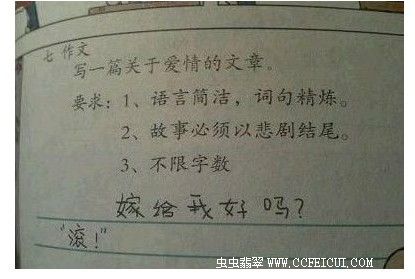 七 作文
写一篇关于爱情的文章。
要求：1、语言简洁，词句精炼。
2、故事必须以悲剧结尾。
3、不限字数
嫁给我好吗？
“滚！”
虫虫翡翠 WWW.CCFEICUI.COM